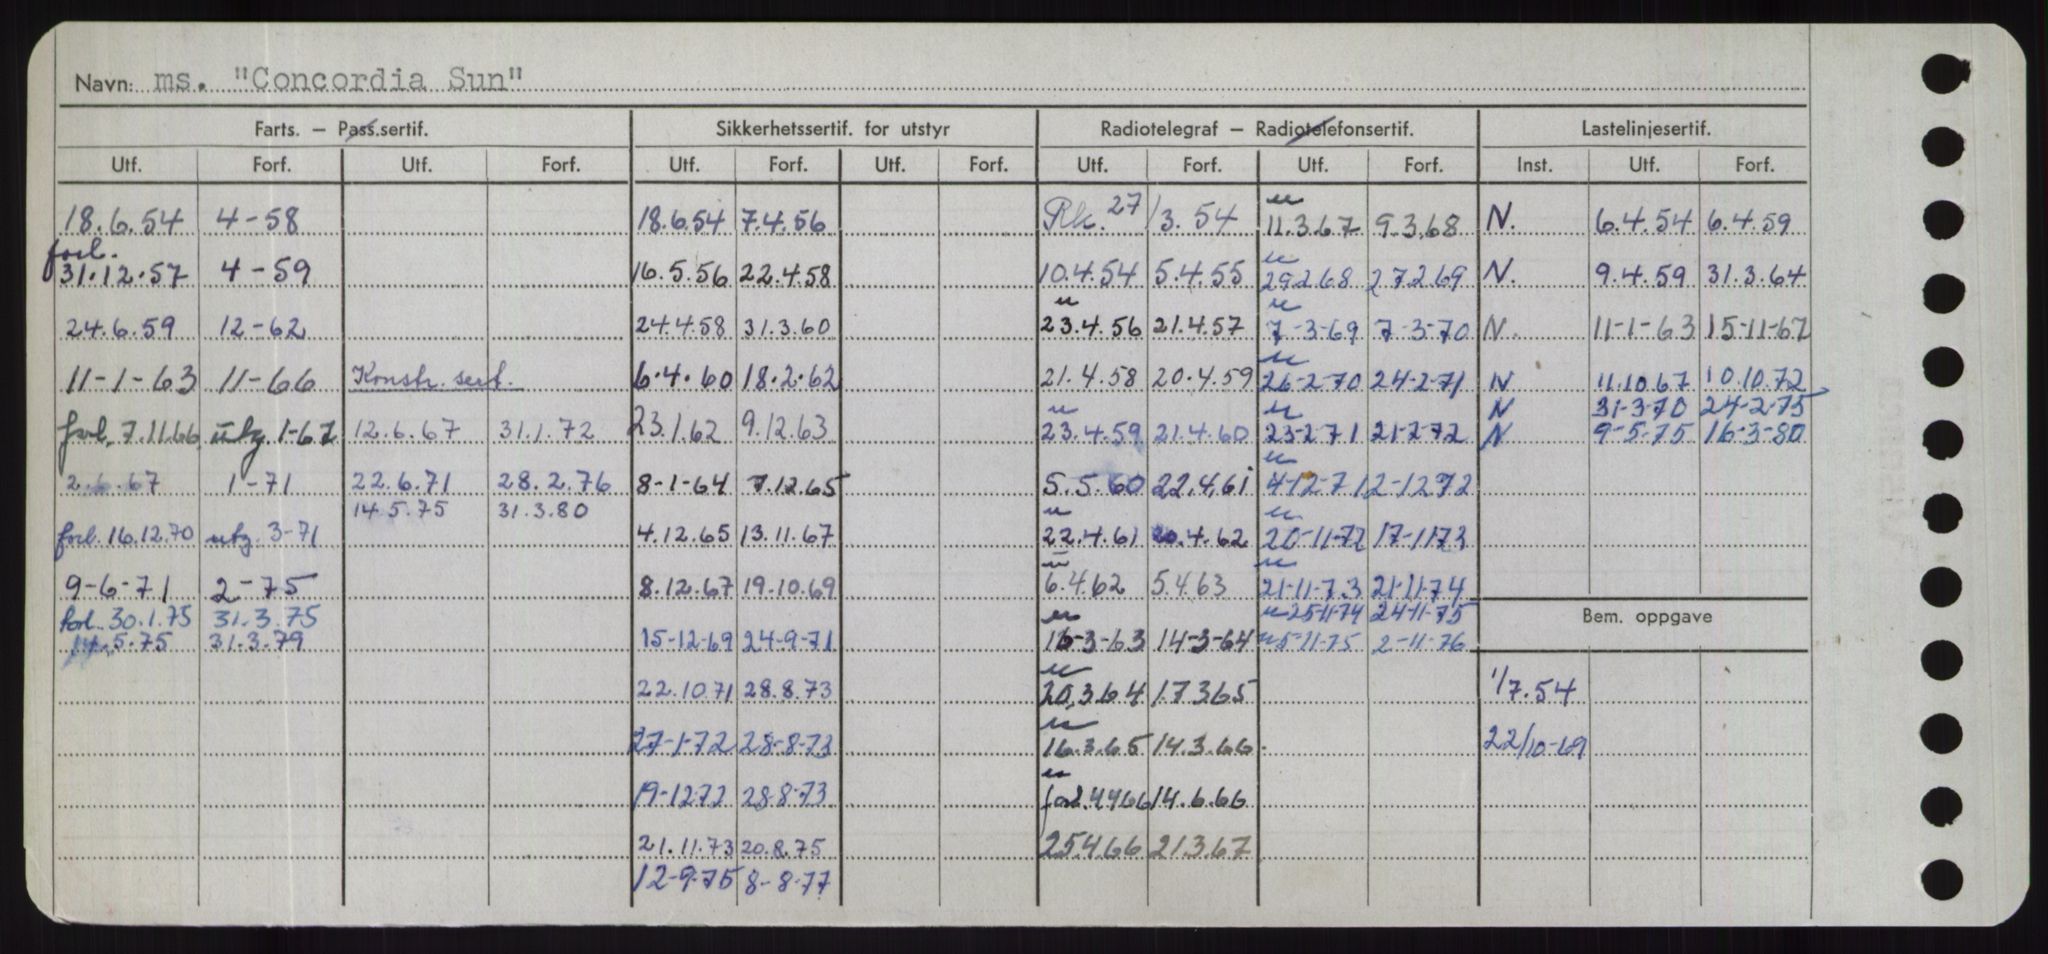 Navn: ms. "Concordia Sun"
Farts. – Pass.sertif. Sikkerhetssertif. for utstyr Radiotelegraf – Radiotelefonsertif. Lastelinjesertif.
Utf. Forf. Utf. Forf. Utf. Forf. Utf. Forf. Utf. Forf. Utf. Forf. Inst. Utf. Forf.
18.6.54 4-58 18.6.54 7.4.56 Rk. 27/3.54 11.3.67 9.3.68 N. 6.4.54 6.4.59
forl.
31.12.57 4-59 16.5.56 22.4.58 10.4.54 5.4.55 29.2.68 27.2.69 N. 9.4.59 31.3.64
24.6.59 12-62 24.4.58 31.3.60 23.4.56 21.4.57 7-3-69 7-3-70 N. 11-1-63 15-11-67
11-1-63 11-66 Konstr. sert. 6.4.60 18.2.62 21.4.58 20.4.59 26-2-70 24-2-71 N 11.10.67 10.10.72
N 31-3-70 24-2-75
forl. 7.11.66 utg. 1-67 12.6.67 31.1.72 23.1.62 9.12.63 23.4.59 21.4.60 23-2-71 21-2-72 N 9-5-75 16-3-80
2.6.67 1-71 22.6.71 28.2.76 8-1-64 7.12.65 5.5.60 22.4.61 4-12-71 2-12-72
14.5.75 31.3.80
forl. 16.12.70 utg. 3-71 4.12.65 13.11.67 22.4.61 20.4.62 20-11-72 17-11-73
9-6-71 2-75 8.12.67 19.10.69 6.4.62 5.4.63 21-11-73 21-11-74
forl. 30.1.75 31.3.75 25-11-74 24-11-75 Bem. oppgave
14.5.75 31.3.79 15-12-69 24-9-71 16-3-63 14-3-64 5-11-75 2-11-76
22.10.71 28.8.73 20.3.64 17.3.65 1/7.54
27-1-72 28-8-73 16.3.65 14.3.66 22/10-69
19-12-72 28-8-73 forl. 4.4.66 14.6.66
21.11.73 20.8.75 25.4.66 21.3.67
12-9-75 8-8-77